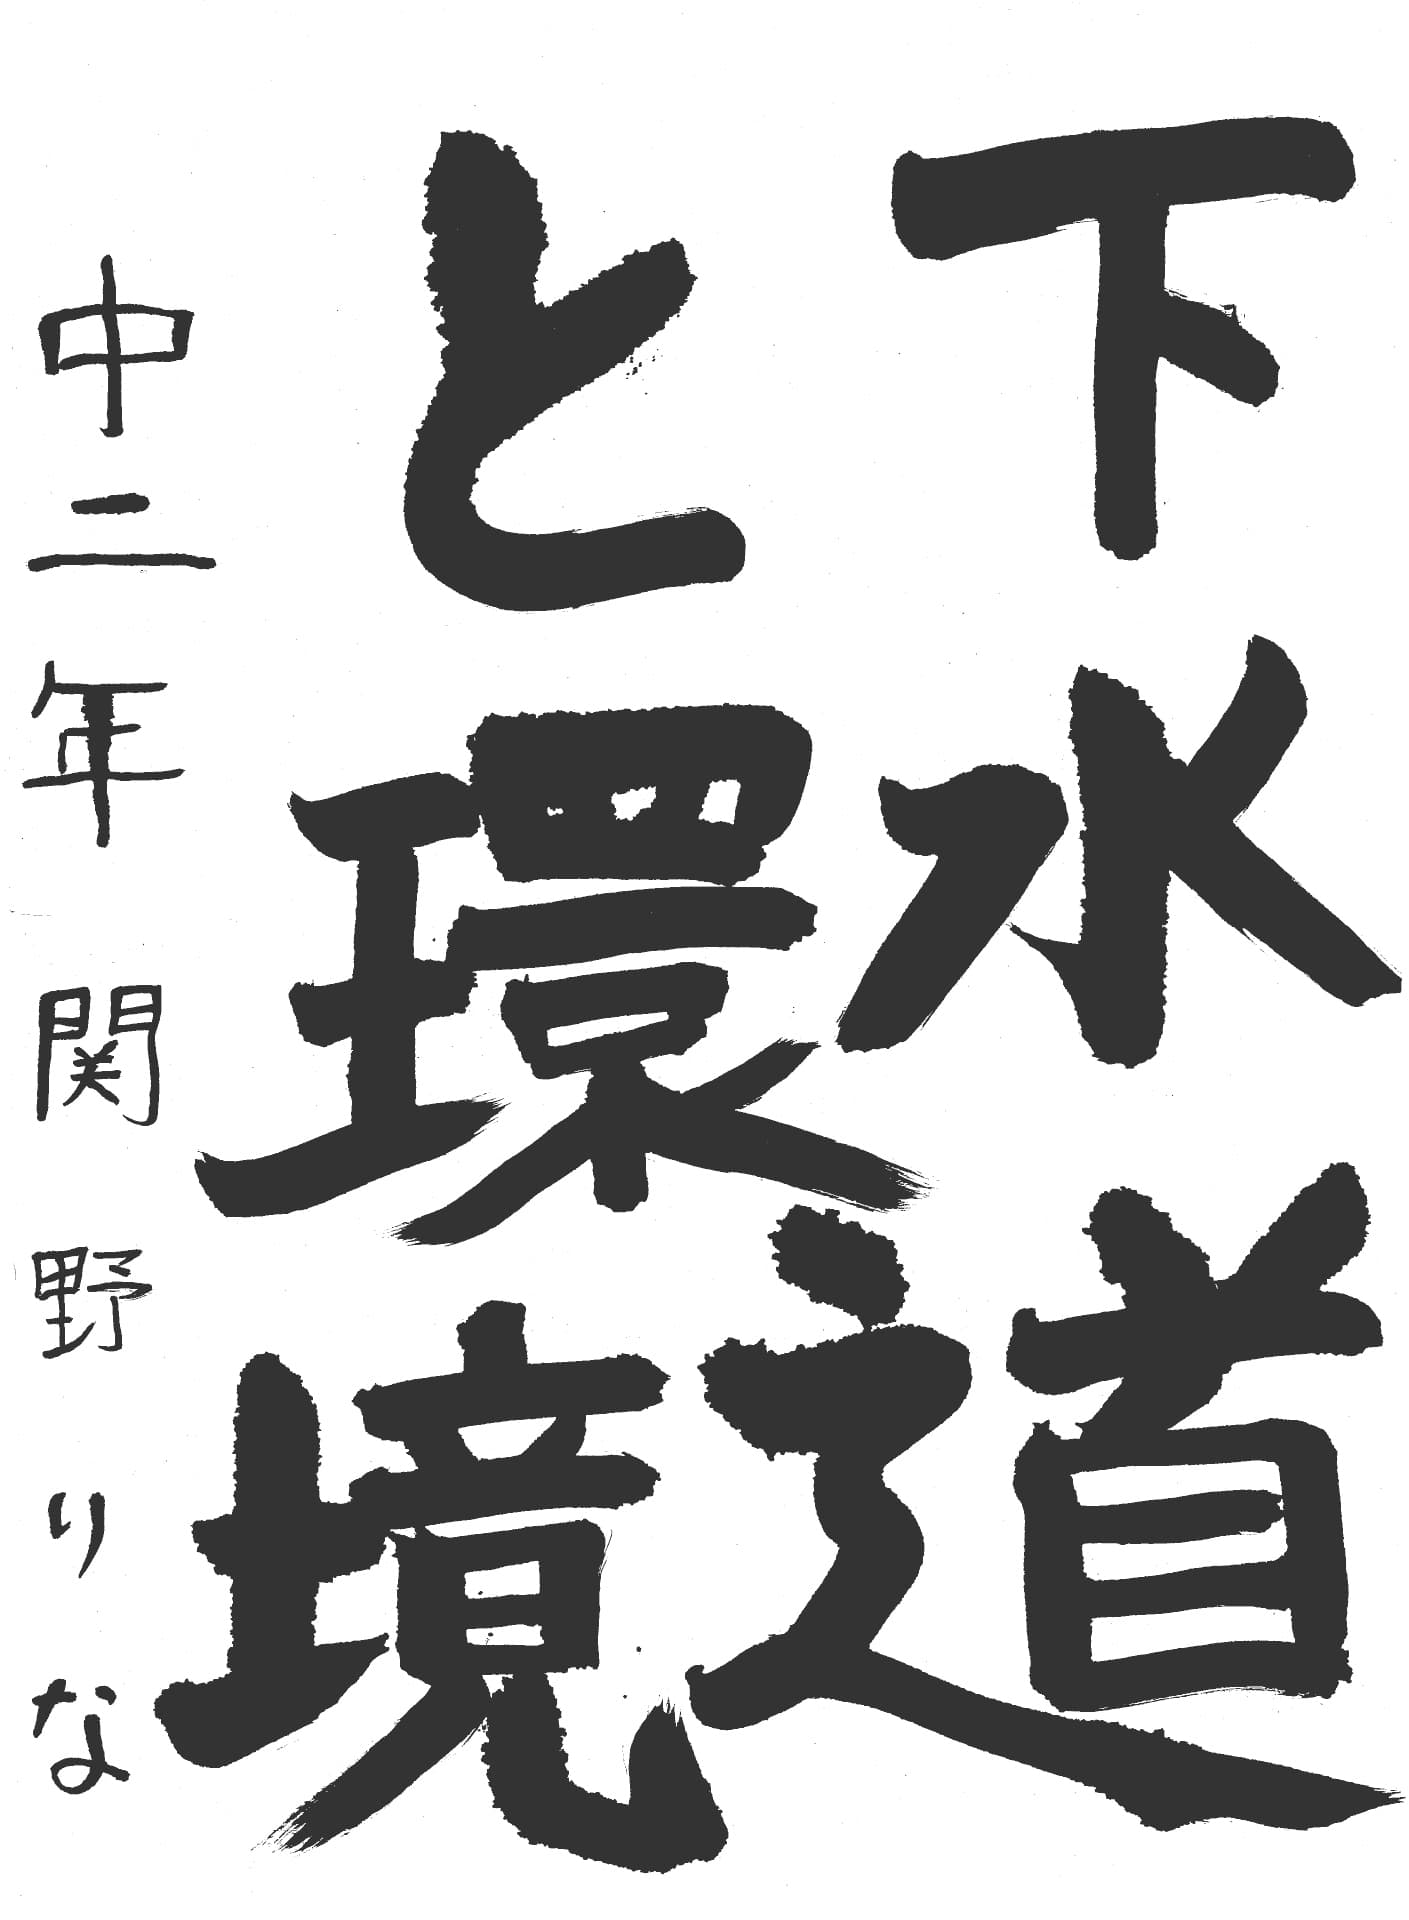 下水道
と環境
中二年 関野りな